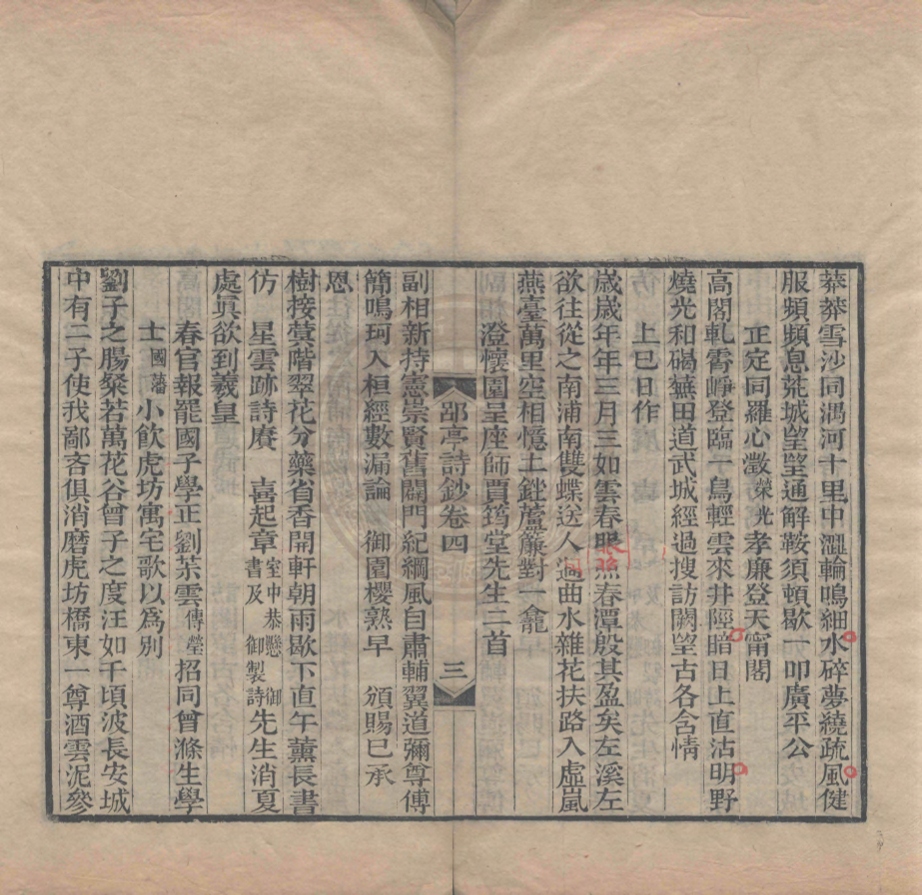 莽莽雪沙同渴河十里中澀輪鳴細水碎夢繞疏風健
服頻頻息荒城望望通解鞍須頓歇一叩廣平公
正定同羅心澂榮光孝廉登天甯閣
高閣軋霄崢登臨一鳥輕雲來井陘暗日上直沽明野
燒光和碣蕪田道武城經過搜訪闕望古各含情
上巳日作
歲歲年年三月三如雲春服照春潭殷其盈矣左溪左
欲往從之南浦南雙蝶送人過曲水雜花扶路入虛嵐
燕臺萬里空相憶土銼蘆簾對一龕
澄懷園呈座師賈筠堂先生二首
邵亭詩鈔卷四 三
副相新持憲崇賢舊闢門紀綱風自肅輔翼道彌尊傅
簡鳴珂入桓經數漏論 御園櫻熟早 頒賜已承
恩
樹接蓂階翠花分藥省香開軒朝雨歇下直午薰長書
仿 星雲跡詩賡 喜起章室中恭懸 御書及 御製詩先生消夏
處眞欲到羲皇
春官報罷國子學正劉茮雲傳瑩招同曾滌生學
士國藩小飲虎坊寓宅歌以爲別
劉子之腸粲若萬花谷曾子之度汪如千頃波長安城
中有二子使我鄙吝俱消磨虎坊橋東一尊酒雲泥參